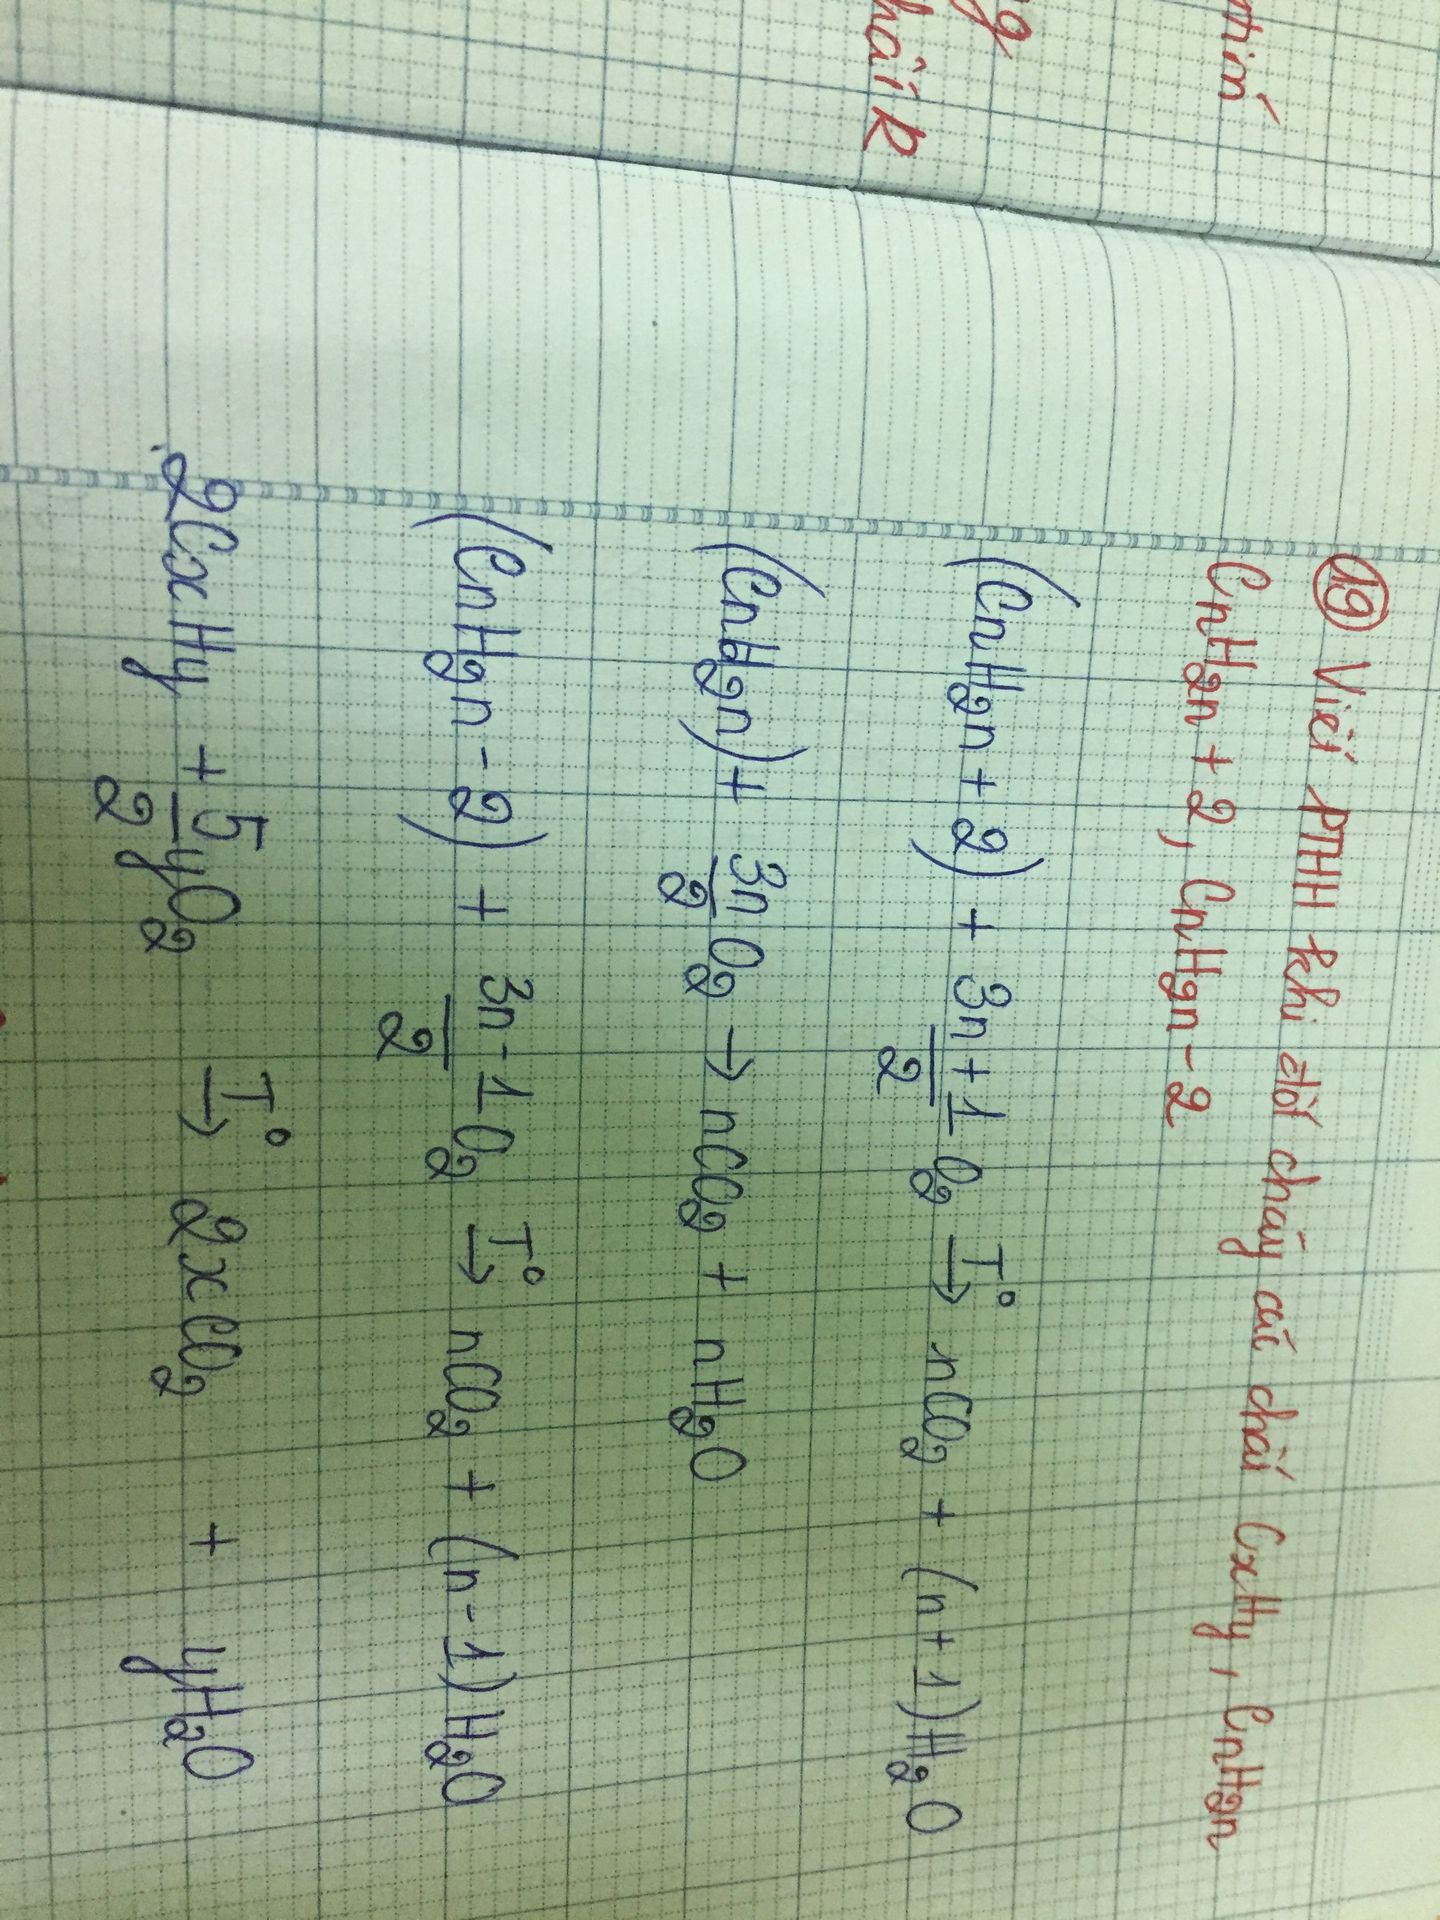 tín
g
hái k
19 Viết PTHH khi đốt cháy các chất CxHy, CnH2n
CnH2n + 2, CnH2n - 2
(CnH2n + 2) + 3n + 1/2 O2 T° → nCO2 + (n + 1) H2O
(CnH2n) + 3n/2 O2 → nCO2 + nH2O
(CnH2n - 2) + 3n - 1/2 O2 T° → nCO2 + (n - 1) H2O
2CxHy + 5/2 yO2 T° → 2xCO2 + yH2O